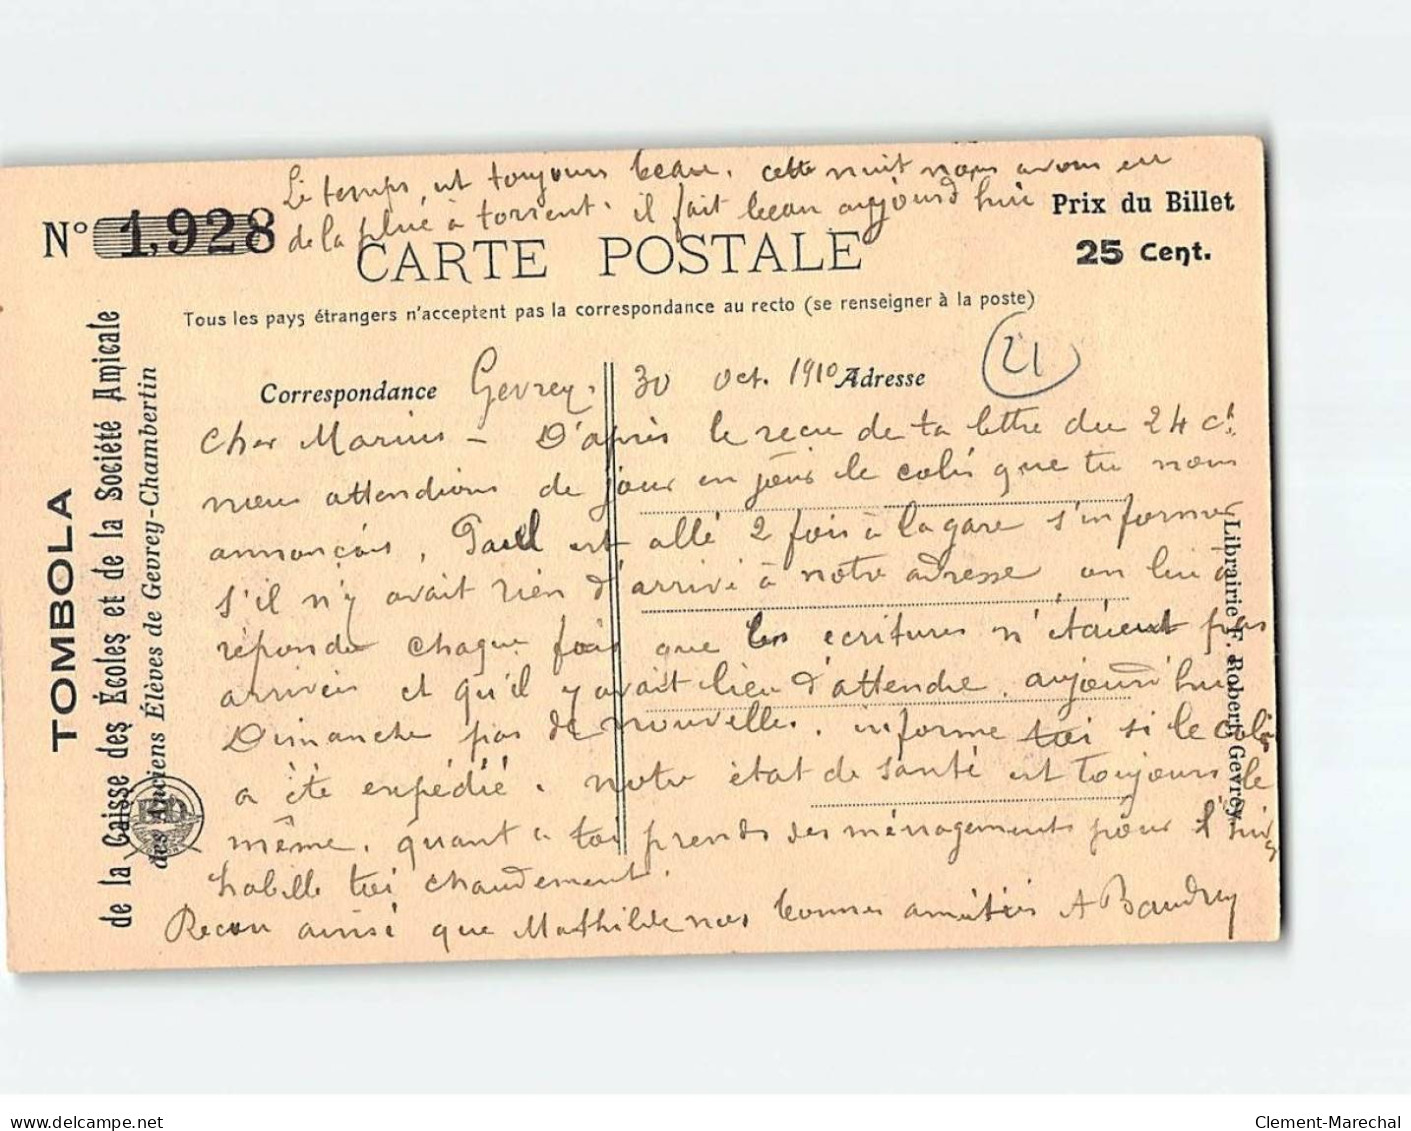 Le temps est toujours beau. cette nuit nous avons eu
de la pluie à torrent. il fait beau aujourd'hui
N° 1,928
Prix du Billet
25 Cent.
CARTE POSTALE
Tous les pays étrangers n'acceptent pas la correspondance au recto (se renseigner à la poste)
21
Correspondance Gevrey. 30 Oct. 1910 Adresse
Cher Marius – D'après le recu de ta lettre du 24 ct
nous attendions de jour en jour le colis que tu nous
annonçais, Paul est allé 2 fois à la gare s'informer
s'il n'y avait rien d'arrivé à notre adresse on lui a
répondu chaque fois que les écritures n'étaient pas
arrivées et qu'il y avait lieu d'attendre. aujourd'hui
Dimanche pas de nouvelles. informe toi si le colis
a été expédié. notre état de santé est toujours le
même. quant à toi prends des ménagements pour l'hiver
habille toi chaudement.
Recou ainsi que Mathilde nos bonnes amitiés A Baudry
TOMBOLA
de la Caisse des Écoles et de la Société Amicale
des Anciens Élèves de Gevrey-Chambertin
Librairie F. Robert, Gevrey.
delcampe.net
Clement-Marechal